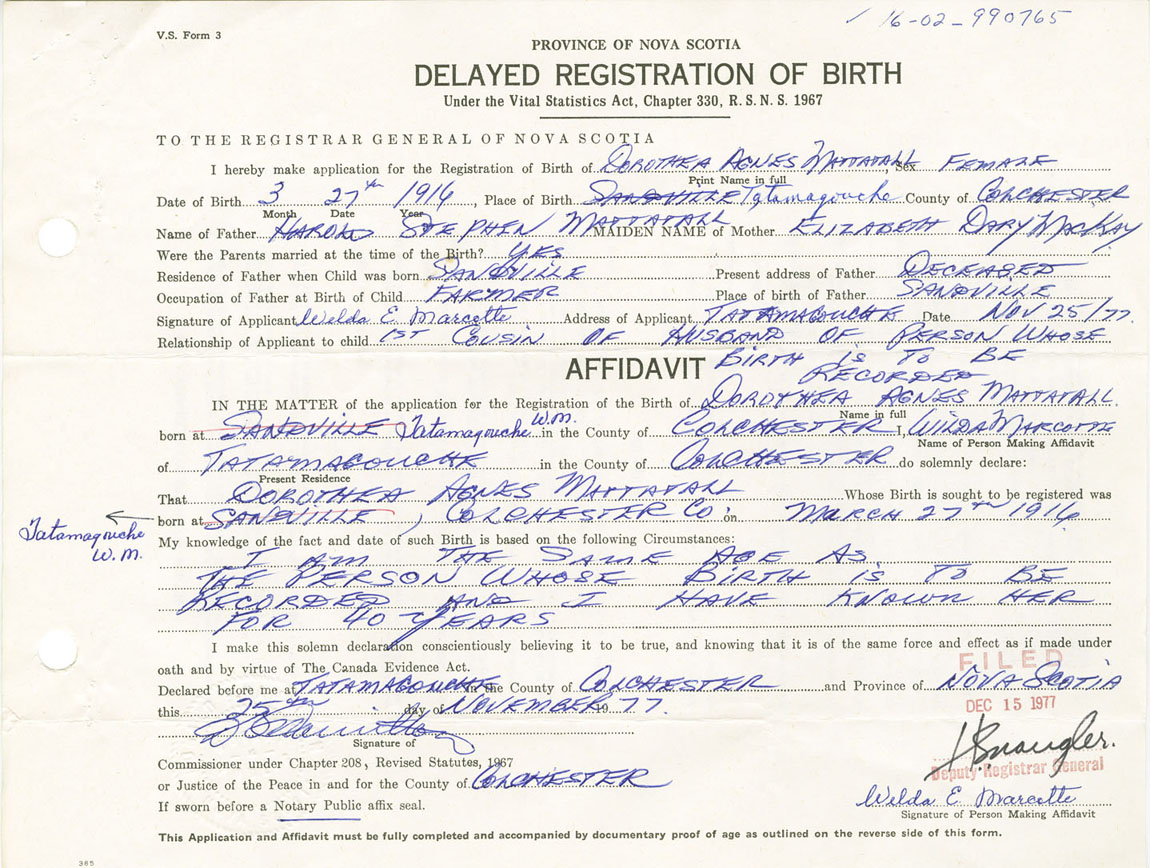 16-02-990765
V.S. Form 3
PROVINCE OF NOVA SCOTIA
DELAYED REGISTRATION OF BIRTH
Under the Vital Statistics Act, Chapter 330, R.S.N.S. 1967
TO THE REGISTRAR GENERAL OF NOVA SCOTIA
I hereby make application for the Registration of Birth of DOROTHEA AGNES MATTATALL Sex FEMALE
Print Name in full
Date of Birth 3 27th 1916, Place of Birth SANDVILLE Tatamagouche County of COLCHESTER
Month Date Year
Name of Father HAROLD STEPHEN MATTATALL MAIDEN NAME of Mother ELIZABETH DARY MACKAY
Were the Parents married at the time of the Birth? YES
Residence of Father when Child was born SANDVILLE Present address of Father DECEASED
Occupation of Father at Birth of Child FARMER Place of birth of Father SANDVILLE
Signature of Applicant Welda E. Marcotte Address of Applicant TATAMAGOUCHE Date NOV 25/77.
Relationship of Applicant to child 1ST COUSIN OF HUSBAND OF PERSON WHOSE
BIRTH IS TO BE
RECORDED
AFFIDAVIT
IN THE MATTER of the application for the Registration of the Birth of DOROTHEA AGNES MATTATALL
Name in full
born at SANDVILLE Tatamagouche W.M. in the County of COLCHESTER I, WILDA MARCOTTE
Name of Person Making Affidavit
of TATAMAGOUCHE in the County of COLCHESTER do solemnly declare:
Present Residence
That DOROTHEA AGNES MATTATALL Whose Birth is sought to be registered was
born at SANDVILLE, COLCHESTER CO: on MARCH 27TH 1916
Tatamagouche
W.M.
My knowledge of the fact and date of such Birth is based on the following Circumstances:
I AM THE SAME AGE AS
THE PERSON WHOSE BIRTH IS TO BE
RECORDED AND I HAVE KNOWN HER
FOR 40 YEARS
I make this solemn declaration conscientiously believing it to be true, and knowing that it is of the same force and effect as if made under
oath and by virtue of The Canada Evidence Act.
Declared before me at TATAMAGOUCHE in the County of COLCHESTER and Province of NOVA SCOTIA
this 25th day of NOVEMBER 1977.
Signature of
Commissioner under Chapter 208, Revised Statutes, 1967
or Justice of the Peace in and for the County of COLCHESTER
If sworn before a Notary Public affix seal.
FILED
DEC 15 1977
Deputy Registrar General
Welda E. Marcotte
Signature of Person Making Affidavit
This Application and Affidavit must be fully completed and accompanied by documentary proof of age as outlined on the reverse side of this form.
385